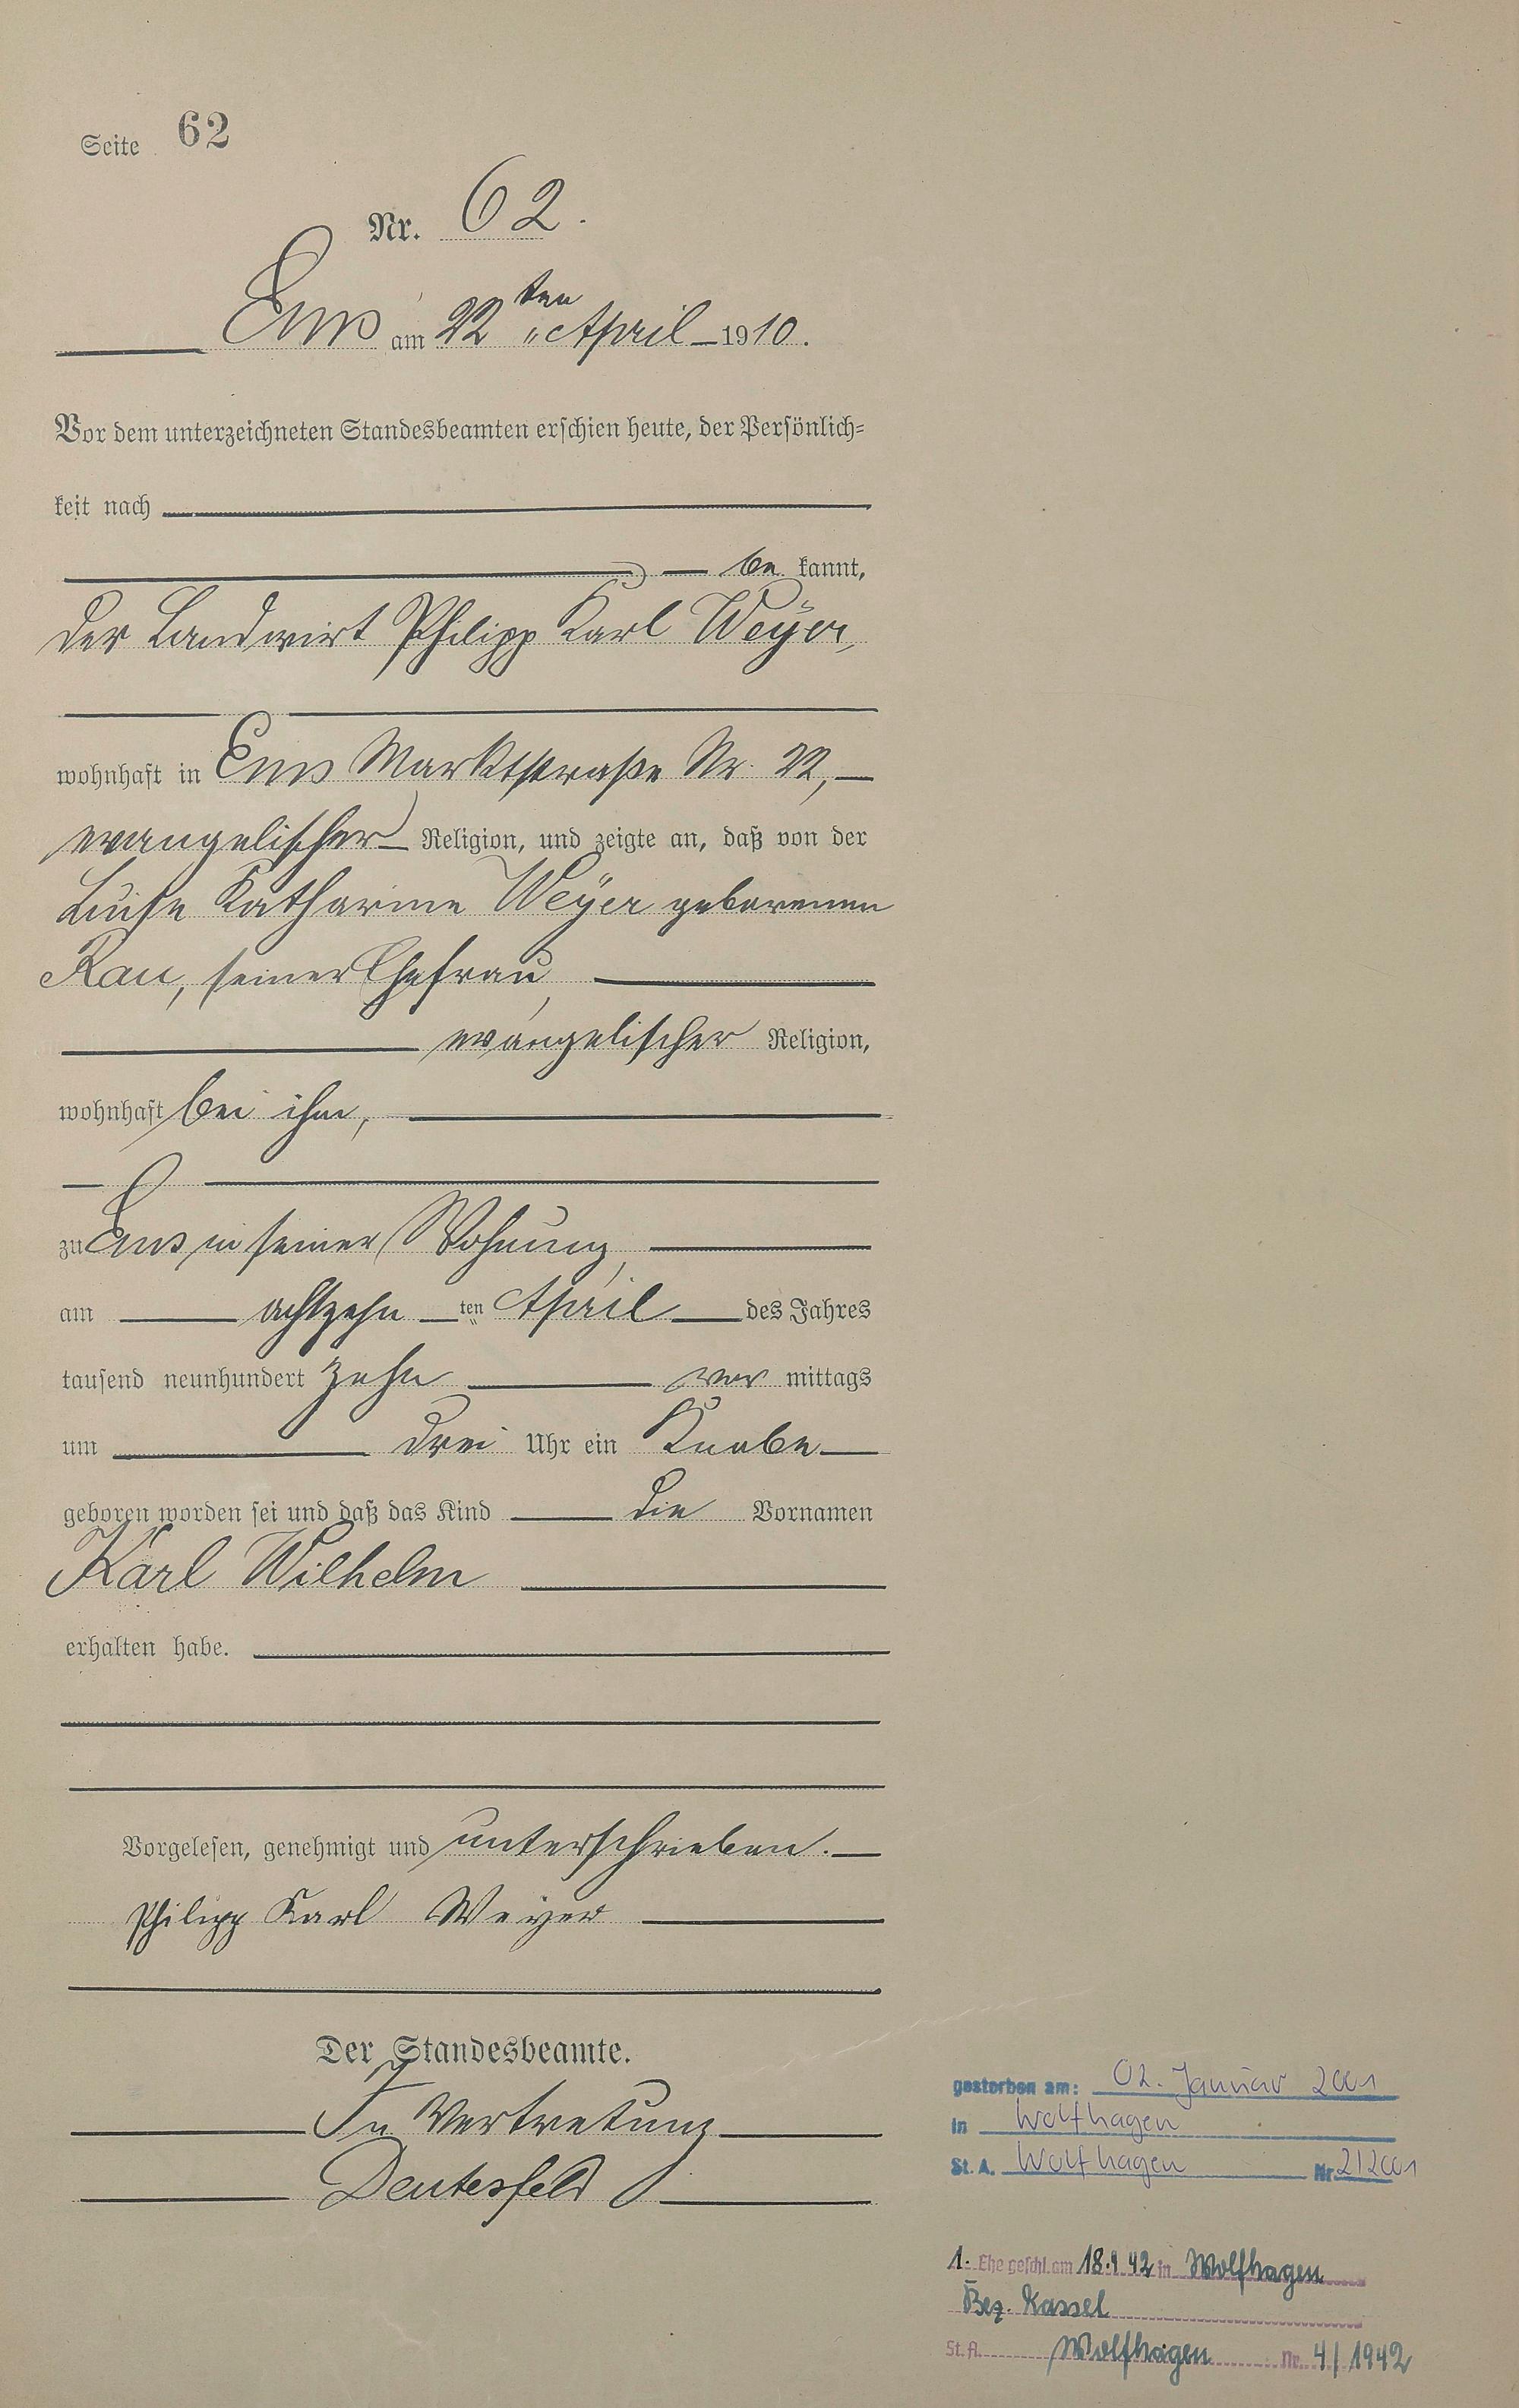 Seite 62
Nr. 62.
Ems am 22ten April 1910.
Vor dem unterzeichneten Standesbeamten erschien heute, der Persönlich-
keit nach
be kannt,
der Landwirt Philipp Karl Weÿer,
wohnhaft in Ems Marktstraße Nr. 22,
evangelischer Religion, und zeigte an, daß von der
Luise Katharine Weÿer geborenen
Rau, seiner Ehefrau,
evangelischer Religion,
wohnhaft bei ihm,
zu Ems in seiner Wohnung,
am achtzehn ten April des Jahres
tausend neunhundert zehn vor mittags
um drei Uhr ein Knabe
geboren worden sei und daß das Kind die Vornamen
Karl Wilhelm
erhalten habe.
Vorgelesen, genehmigt und unterschrieben.
Philipp Karl Weyer
Der Standesbeamte.
In Vertretung
Deutesfeld
gestorben am: 02. Januar 2001
in Wolfhagen
St. A. Wolfhagen Nr. 2/2001
1. Ehe geschl. am 18.4.42 in Wolfhagen
Bez. Kassel
St. A. Wolfhagen Nr. 4/1942